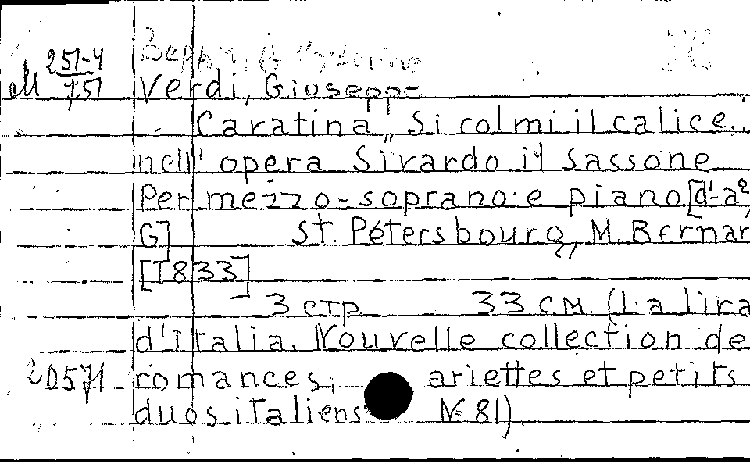 M 251-4
751
Verdi, Giuseppe
Cavatina „Si colmi il calice„
nell' opera Sivardo il Sassone
Per mezzo-soprano e piano [d'-a²,
G] St. Pétersbourg, M. Bernar
[1833]
3 стр 33 см (La lira
d'Italia. Nouvelle collection de
20571 romances, ariettes et petits
duos italiens № 81)